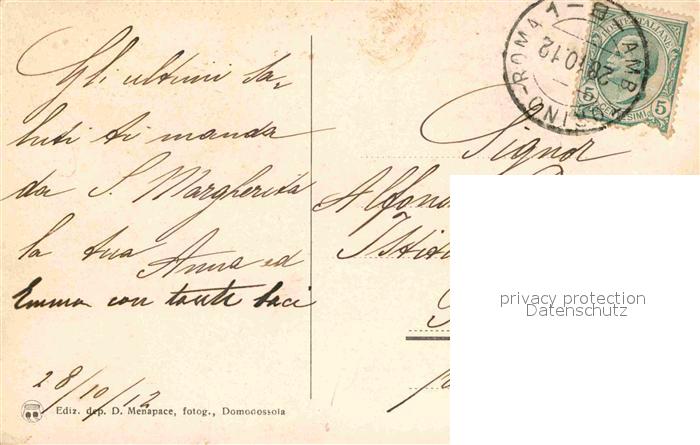 Gli ultimi sa-
luti ti manda
da S. Margherita
la tua Anna ed
Emma con tanti baci
28/10/12
Ediz. dep. D. Menapace, fotog., Domodossola
AMB. TORINO-ROMA 1
28.10.12
POSTE ITALIANE
5 CENTESIMI 5
Signor
Alfon
Istitu
privacy protection
Datenschutz